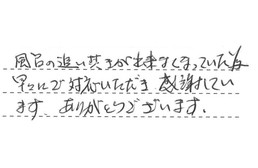 風呂の追い炊きが出来なくなっていた為
早々にご対応いただき感謝してい
ます。ありがとうございます。